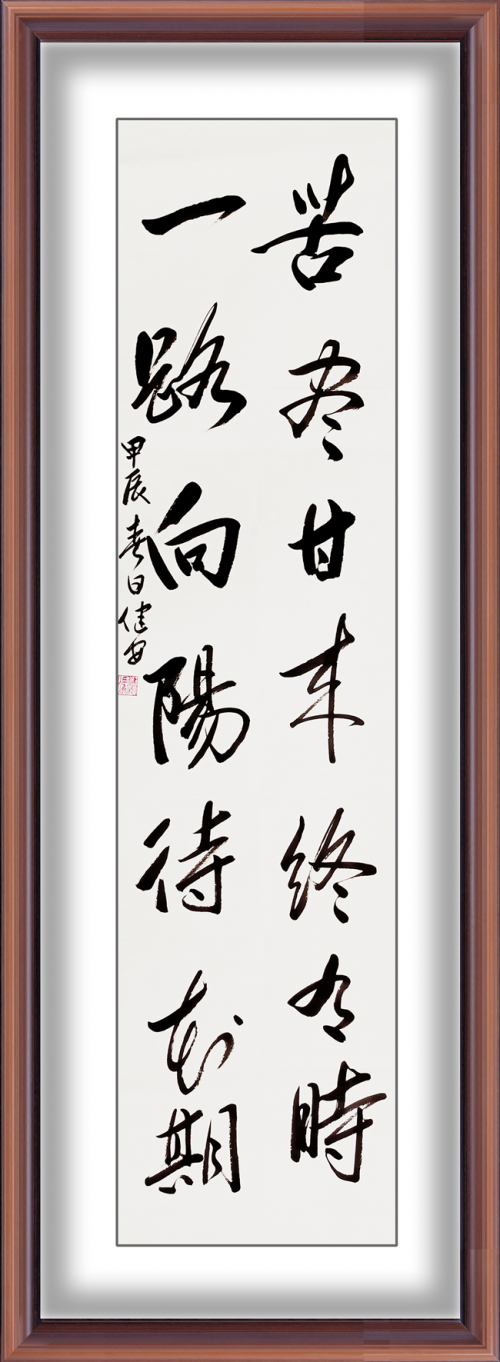 苦尽甘来终有時
一路向陽待花期
甲辰春日健安